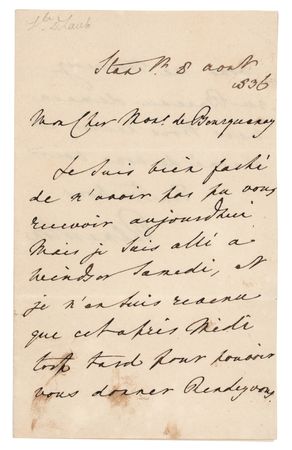 Stan Pl. 8 aout
1836
Mon Cher Mons. de Bourqueney
Je Suis bien faché
de n'avoir pas pu vous
recevoir aujourdhui
Mais je Suis allé à
Windsor Samedi, et
je n'en suis revenu
que cet après Midi
trop tard pour pouvoir
vous donner Rendezvous